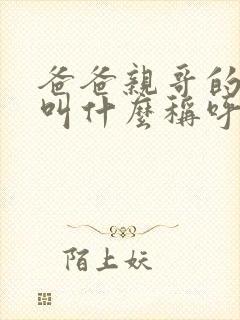 爸爸親哥的
叫什麼稱呼
陌上妖